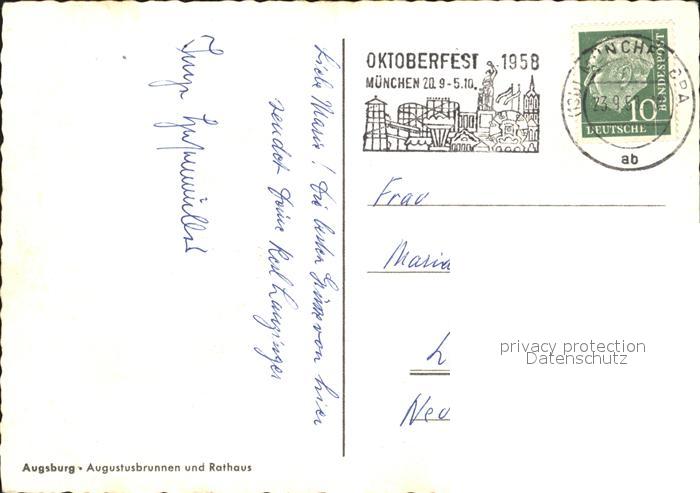 OKTOBERFEST 1958
MÜNCHEN 20.9-5.10.
MÜNCHEN
23.9.
ab
10
BUNDESPOST
DEUTSCHE
Liebe Maria! Die besten Grüsse von hier
sendet Deine
Frau
Maria
L
Neu
privacy protection
Datenschutz
Augsburg - Augustusbrunnen und Rathaus